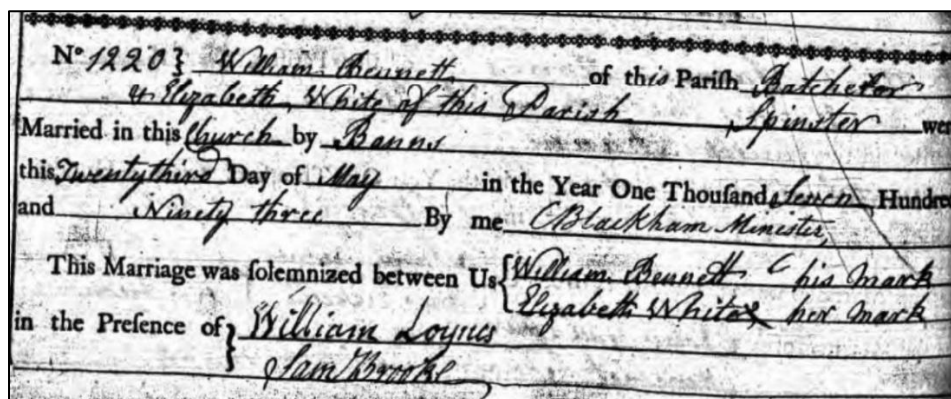 Nº 1220 } William Bennett of this Pariſh Batchelor
& Elizabeth White of this Parish Spinster we
Married in this Church by Banns
this Twentythird Day of May in the Year One Thouſand Seven Hundre
and Ninety three By me C Blackham Minister,
This Marriage was ſolemnized between Us { William Bennett his mark
Elizabeth White x her mark
in the Preſence of } William Loynes
Saml Brooke